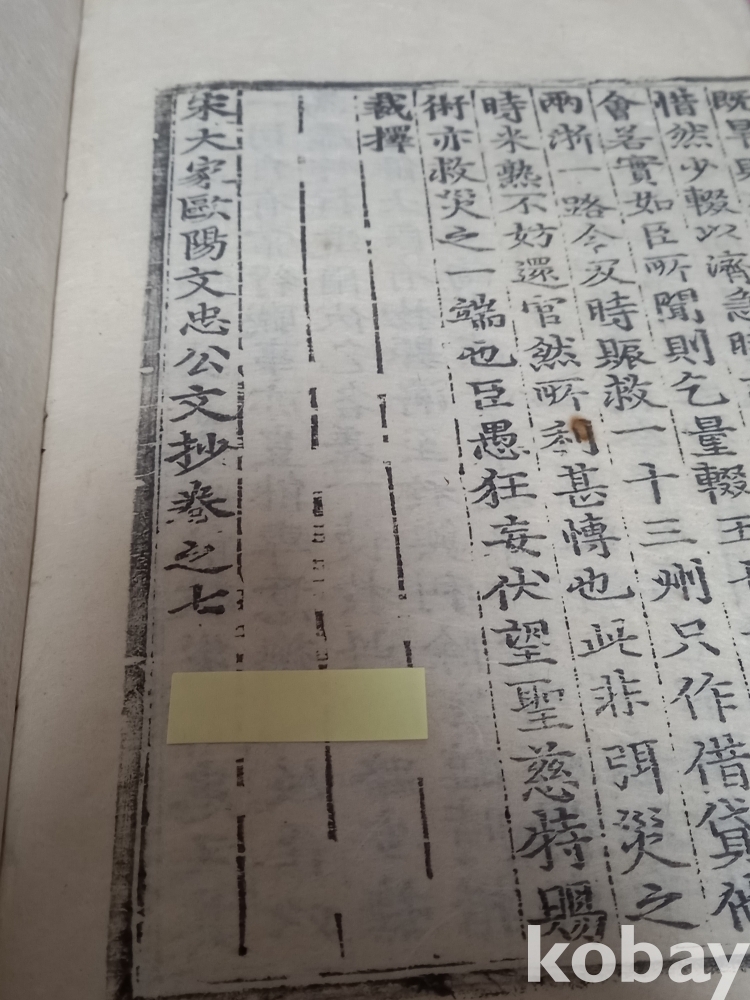 既旱則
惜然少輟以濟急時
會若實如臣所聞則乞量輟五
兩浙一路令及時賑救一十三州只作借貸他
時米熟不妨還官然所利甚慱也此非弭災之
術亦救災之一端也臣愚狂妄伏望聖慈特賜
裁擇
宋大家歐陽文忠公文抄卷之七
kobay